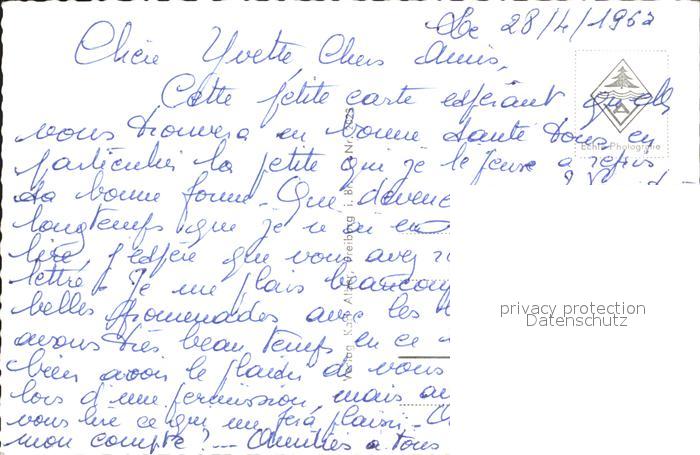 Le 28/4/1962
Chère Yvette, Chers Amis,
Cette petite carte espérant qu'elle
vous trouvera en bonne santé tous en
particulier la petite qui je le pense a repris
sa bonne forme. Que devene
longtemps que je n'ai eu
lire, j'espère que vous avez
lettre. Je me plais beaucoup
belles promenades avec les
avons très beau temps en ce
bien avoir le plaisir de vous
lors d'une permission, mais au
vous lire ce qui me fera plaisir.
mon compte? Amitiés à tous
Echte Photographie
Verlag Freiburg i. Br.
privacy protection
Datenschutz